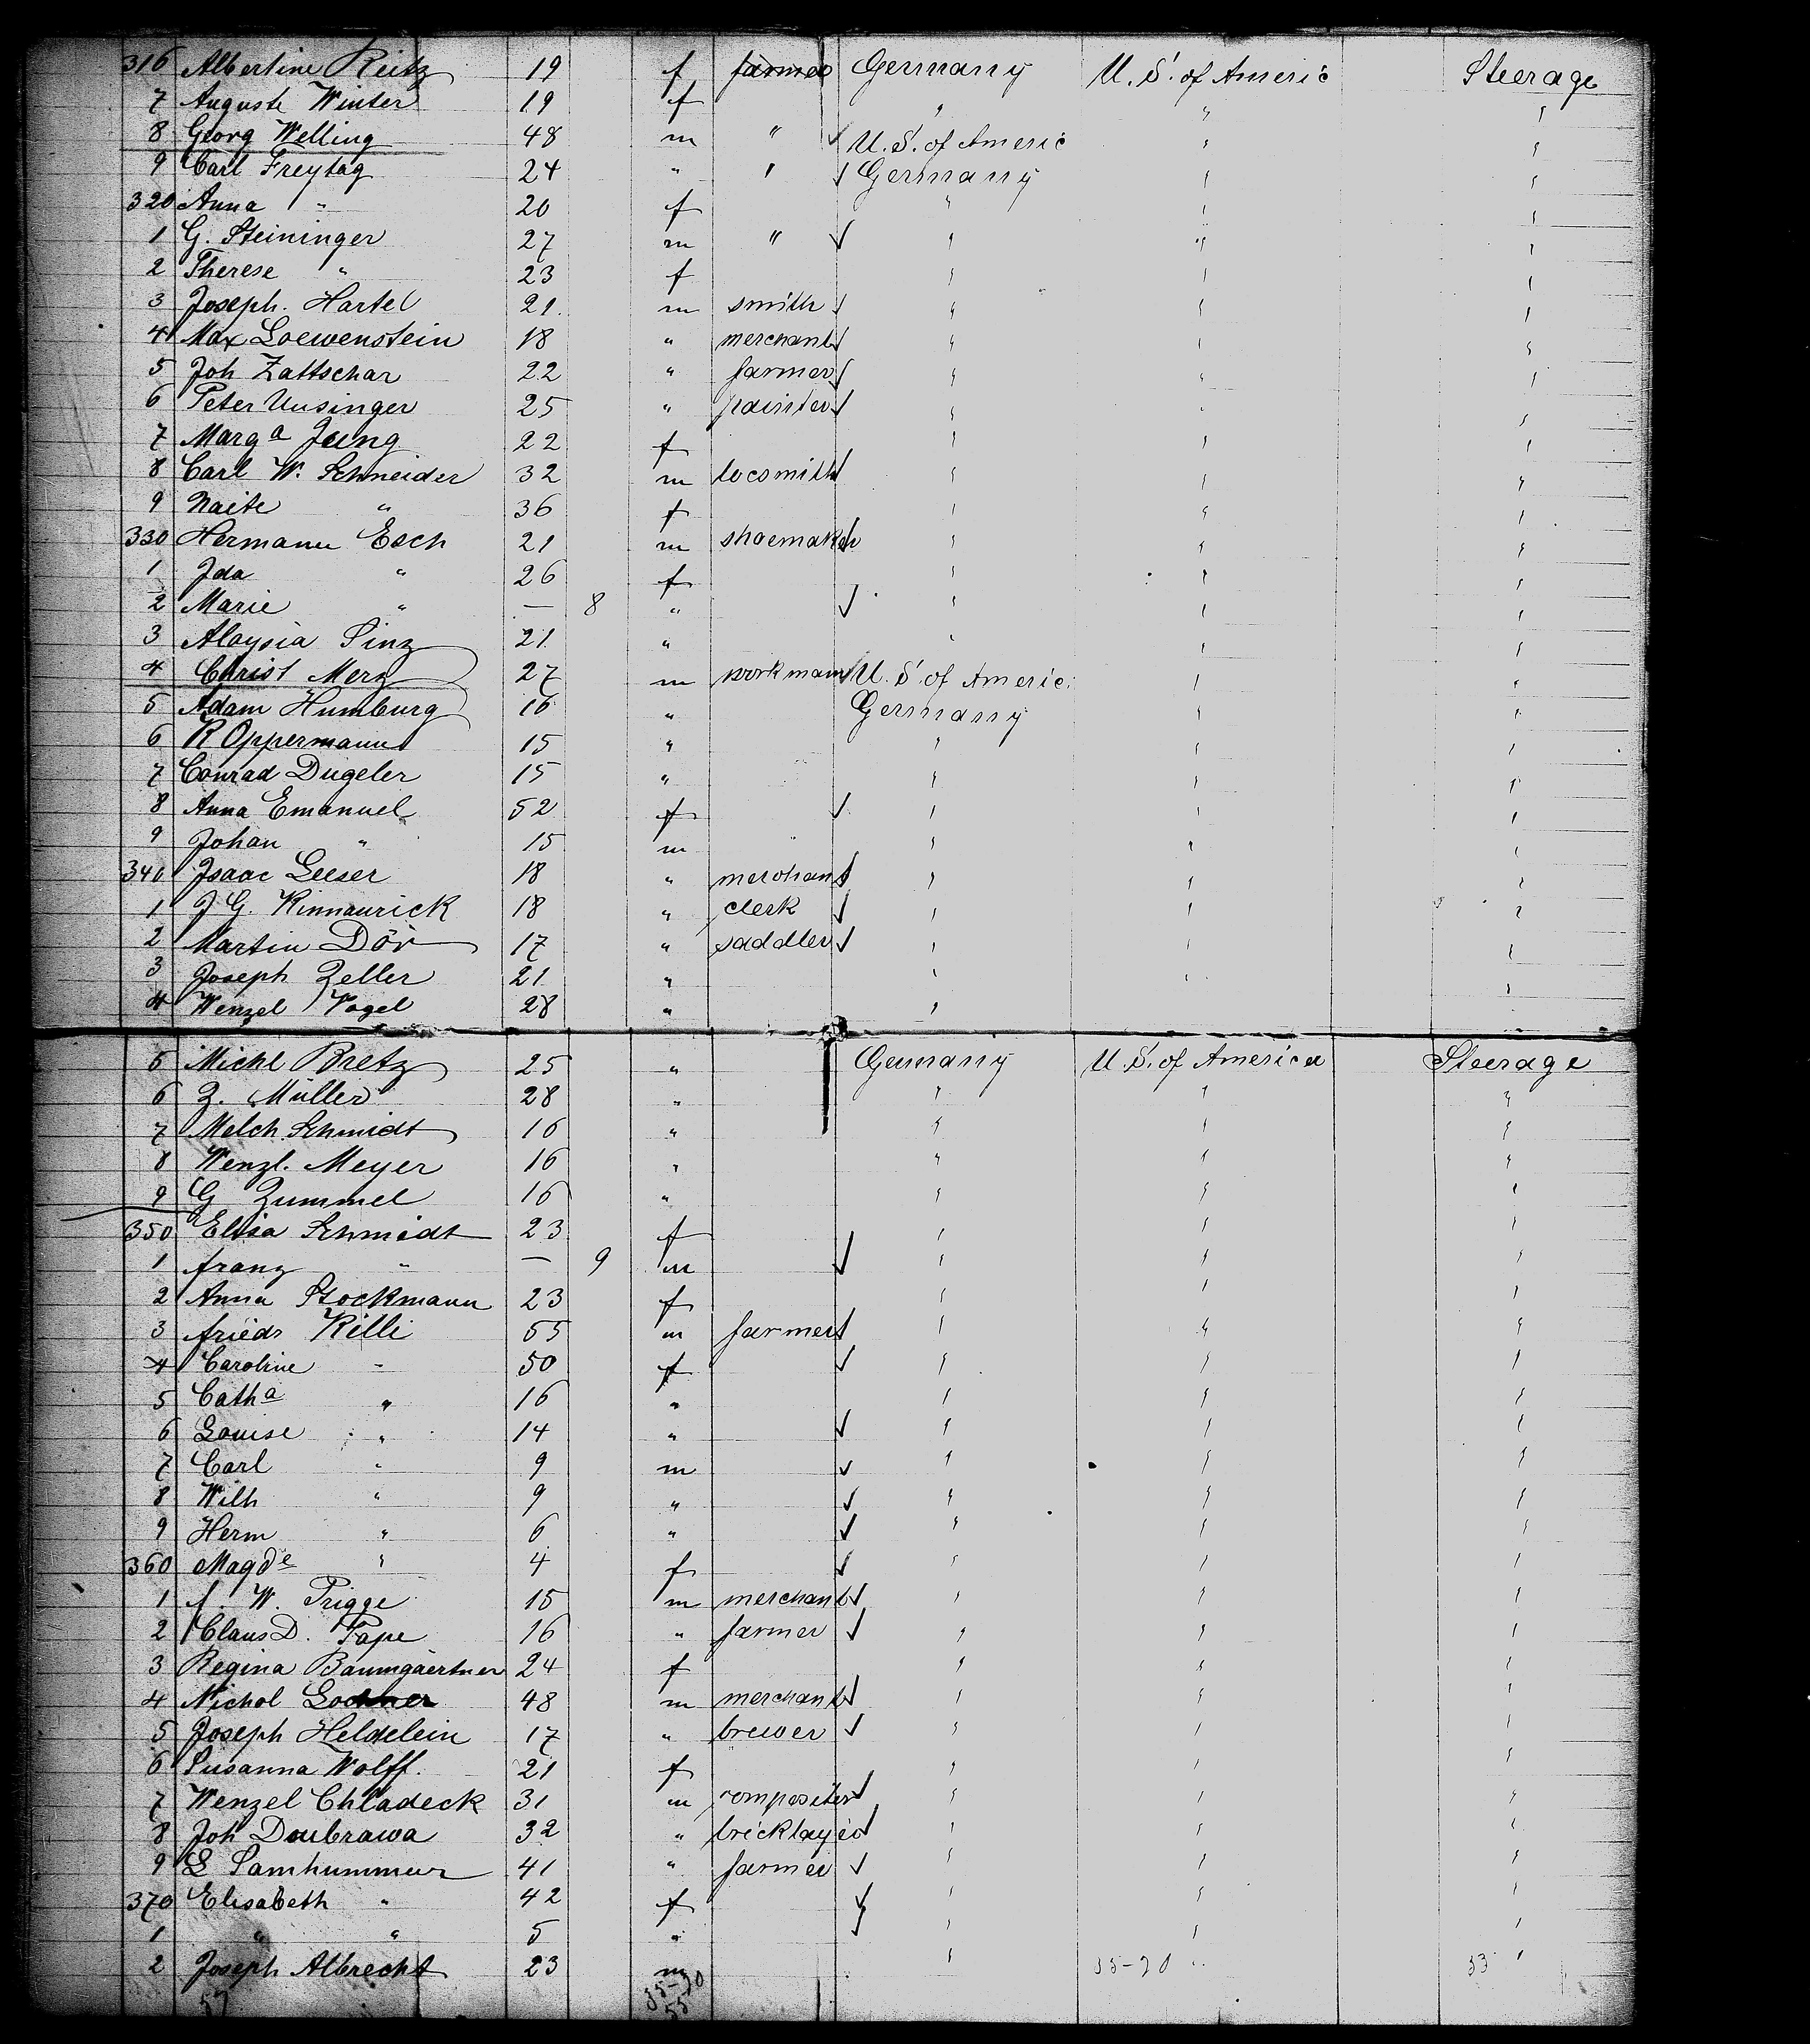 316 Albertine Reitz 19 f farmer Germany U.S. of Americ Steerage
7 Auguste Winter 19 f " " "
8 Georg Welling 48 m " ✓ U.S. of Americ " "
9 Carl Freytag 24 " " ✓ Germany " "
320 Anna " 20 f " " "
1 G. Steininger 27 m " ✓ " " "
2 Therese " 23 f " " "
3 Joseph. Hartel 21 m smith ✓ " " "
4 Max Loewenstein 18 " merchant ✓ " " "
5 Joh Zattschar 22 " farmer ✓ " " "
6 Peter Unsinger 25 " painter ✓ " " "
7 Marga Jung 22 f " " "
8 Carl W. Schneider 32 m locsmith ✓ " " "
9 Naite " 36 f " " "
330 Hermann Esch 21 m shoemaker ✓ " " "
1 Ida " 26 f " " "
2 Marie " — 8 " ✓ " " "
3 Aloysia Sinz 21 " " " "
4 Christ Merz 27 m workman ✓ U.S. of Americ. " "
5 Adam Humburg 16 " Germany " "
6 R Oppermann 15 " " " "
7 Conrad Dugeler 15 " " " "
8 Anna Emanuel 52 f ✓ " " "
9 Johan " 15 m " " " "
340 Isaac Leeser 18 " merchant ✓ " " "
1 J G. Kinnaurick 18 " clerk ✓ " " "
2 Martin Dör 17 " saddler ✓ " " "
3 Joseph Zeller 21 " " " "
4 Wenzel Vogel 28 " " "
5 Michl Bretz 25 " Germany U.S. of America Steerage
6 Z. Müller 28 " " " "
7 Melch. Schmidt 16 " " " "
8 Wenzl. Meyer 16 " " " "
9 G Zummel 16 " " " "
350 Elisa Schmidt 23 f " " "
1 franz " — 9 m ✓ " " "
2 Anna Stockmann 23 f " " "
3 friedr Killi 55 m farmer ✓ " " "
4 Caroline " 50 f ✓ " " "
5 Catha " 16 " " " "
6 Louise " 14 " ✓ " " "
7 Carl " 9 m ✓ " " "
8 Wilh " 9 " ✓ " " "
9 Herm " 6 " ✓ " " "
360 Magde " 4 f ✓ " " "
1 f. W. Prigge 15 m merchant ✓ " " "
2 Claus D. Pape 16 " farmer ✓ " " "
3 Regina Baumgaertner 24 f " " "
4 Nichol Lochner 48 m merchant ✓ " " "
5 Joseph Heldelein 17 " brewer ✓ " " "
6 Susanna Wolff. 21 f " " "
7 Wenzel Chladeck 31 m compositer ✓ " " "
8 Joh Doubrawa 32 " bricklayer ✓ " " "
9 L Samhummer 41 " farmer ✓ " " "
370 Elisabeth " 42 f ✓ " " "
1 " " 5 " " " "
2 Joseph Albrecht 23 m " 35-20 " 33 "
57 35-20
55